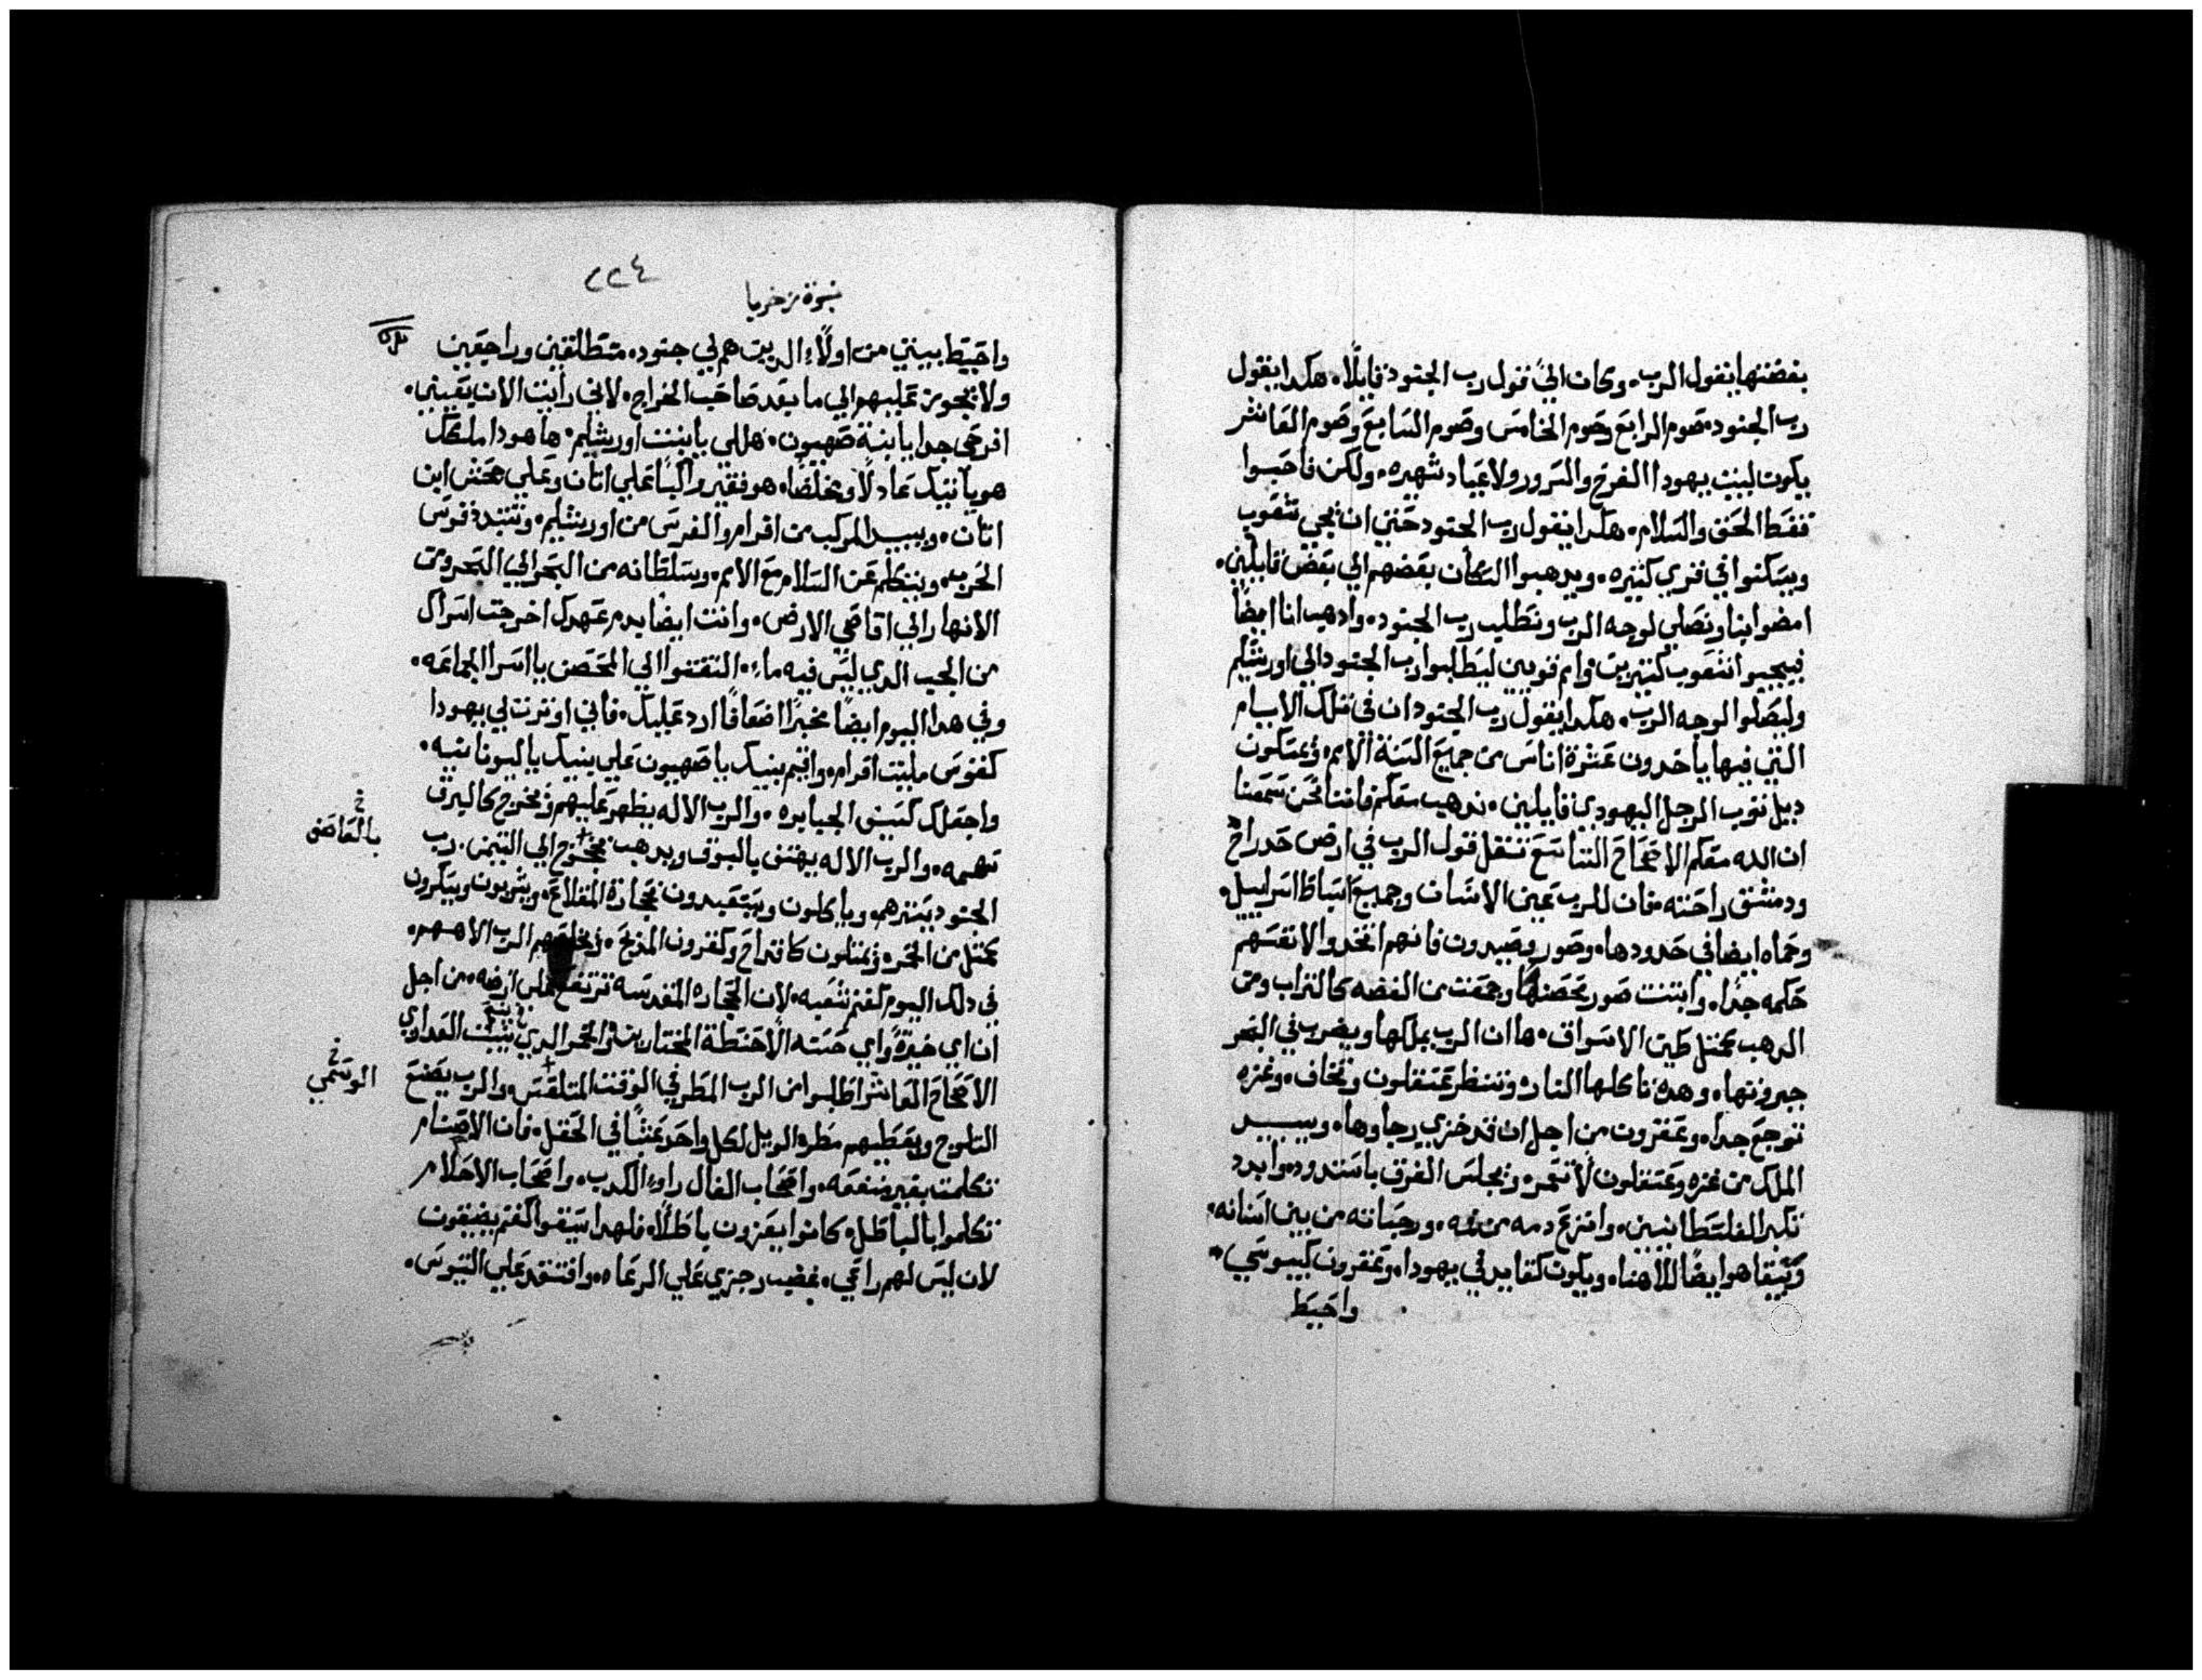 بغضتها يقول الرب. وكان اليَّ قول رب الجنود قايلًا. هكدا يقول
رب الجنود. صوم الرابع وصوم الخامس وصوم السابع وصوم العاشر
يكون لبيت يهودا الفرح والسرور ولاعياد شهيره. ولكن فاحبوا
فقط الحق والسلام. هكدا يقول رب الجنود حتي ان تجي شعوب
ويسكنوا في قري كثيره. ويدهبوا السكان بعضهم الي بعض قايلين.
امضوا بنا ونصلي لوجه الرب ونطلب رب الجنود. وادهب انا ايضًا
فيجيوا شعوب كثيرين وامم قويين ليطلبوا رب الجنود الي اورشليم
وليصلوا لوجه الرب. هكدا يقول رب الجنود ان في تلك الايام
التي فيها ياخدون عشرة اناس من جميع السنة الامم. ويمسكون
ديل توب الرجل اليهودي قايلين. ندهب معكم فاننا نحن سمعنا
ان الله معكم الاصحاح التاسع تقل قول الرب في ارض حدراخ
ودمشق راحته. فان للرب عين الانسان وجميع اسباط اسراييل.
وحماه ايضا في حدودها. وصور وصيدون فانهم اتخدوا لانفسهم
حكمه جدًا. وابتنت صور محصنها وجمعت من الفضه كالتراب ومن
الدهب كمثل طين الاسواق. ها ان الرب يملكها ويضرب في البحر
جبروتها. وهده تاكلها النار. وتنظر عسقلون وتخاف. وغزه
توجع جدا. وعقرون من اجل ان قد خزي رجاوها. ويبيد
الملك من غزه وعسقلون لا تعمر. ويجلس الفرق باسدود. وابدد
تكبر الفلسطانيين. وانزع دمه من فمه. ورجاساته من بين اسنانه.
ويبقا هو ايضًا لالاهنا. ويكون كقايد في يهودا. وعقرون كيبوسي.
واحيط
٢٢٤
نبوة زخريا
واحيط ببيتي من اولاء الدين هم لي جنود. منطلقين وراجعين
ولا يجوز عليهم الي ما بعد صاحب الخراج. لاني رايت الان بعيني.
افرحي جدا يا ابنة صهيون. هللي يا بنت اورشليم. ها هودا ملكك
هو ياتيك عادلًا ومخلصًا. هو فقير وراكبًا علي اتان وعلي جحش ابن
اتان. ويبيد المركب من افرام والفرس من اورشليم. وتبيد قوس
الحرب. ويتكلم عن السلام مع الامم. وسلطانه من البحر الي البحر ومن
الانهار الي اقاصي الارض. وانت ايضا بدم عهدك اخرجت اسراك
من الجب الدي ليس فيه ماء. التفتوا الي المحصن يا اسرا الجماعه.
وفي هدا اليوم ايضًا مخبرًا اضعافًا ارد عليك. فاني اوترت لي يهودا
كقوس مليت افرام. واقيم بنيك يا صهيون علي بنيك يا ليونانيه.
واجعلك كسيف الجبابره. والرب الاله يظهر عليهم ويخرج كالبرق
سهمه. والرب الاله يهتف بالبوق ويدهب بخروج الي التيمن. رب
بالعاصف
الجنود يسترهم. وياكلون ويستعبدون بحجارة المقلاع. ويشربون ويسكرون
كمثل من الخمر. ويمتلون كاقداح وكقرون المدبح. ويخلصهم الرب الاههم.
في دلك اليوم كغنم شعبه. لان الحجاره المقدسه ترتفع علي ارضه. من اجل
ان اي خيرة واي حسنه الا حنطة المختارين والخمر الدي ينبت العداري
الاصحاح العاشر اطلبوا من الرب المطر في الوقت المتلقس. والرب يصنع
الوسمي
التلوج ويعطيهم مطره الوبل لكل واحد عشبًا في الحقل. فان الاصنام
تكلمت بغير منفعه. واصحاب الفال راوا الكدب. واصحاب الاحلام
تكلموا بالباطل. كانوا يعزون باطلًا. فلهدا سيقوا كغنم يضيقون
لان ليس لهم راعي. غضب رجزي علي الرعاه. وافتقد علي التيوس.